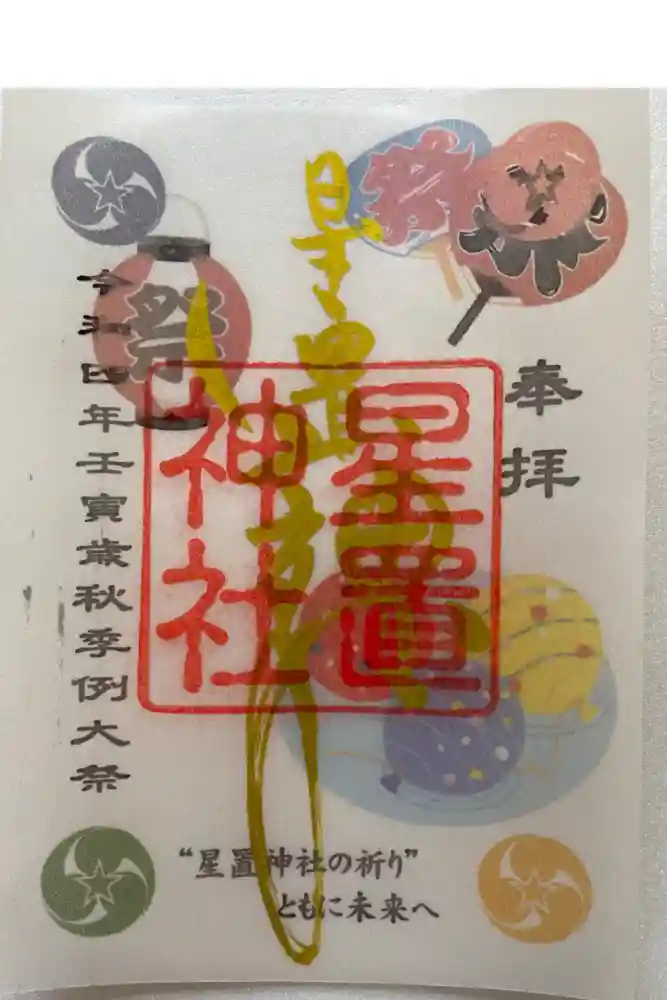 奉拝
祭
星置神社
星置神社
祭
令和四年壬寅歳秋季例大祭
“星置神社の祈り”
ともに未来へ